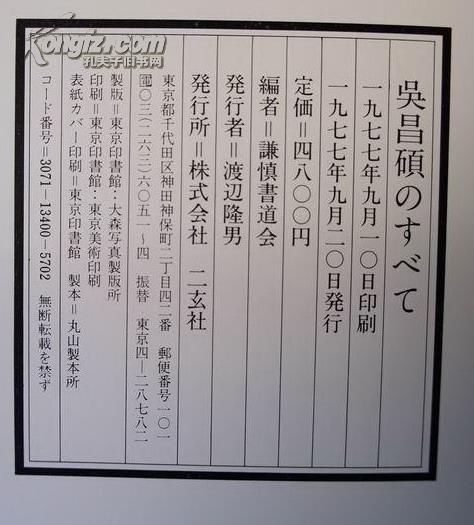 Kongfz.com
孔夫子旧书网
吳昌碩のすべて
一九七七年九月一〇日印刷
一九七七年九月二〇日発行
定価＝四八〇〇円
編者＝謙慎書道会
発行者＝渡辺隆男
発行所＝株式会社　二玄社
東京都千代田区神田神保町二丁目四二番　郵便番号一〇一
電〇三(二六三)六〇五一〜四　振替　東京四—二八七八二
製版＝東京印書館：大森写真製版所
印刷＝東京印書館：東京美術印刷
表紙カバー印刷＝東京印書館　製本＝丸山製本所
コード番号＝3071-13400-5702　無断転載を禁ず